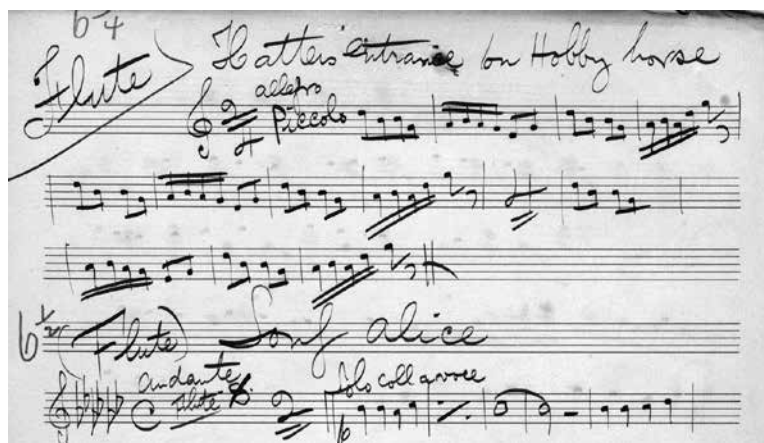 6 4
Flute Hatters entrance on Hobby horse
allegro
2 4 Piccolo
6 1/2 (Flute) Song alice
andante Solo coll a voce
Flute 2